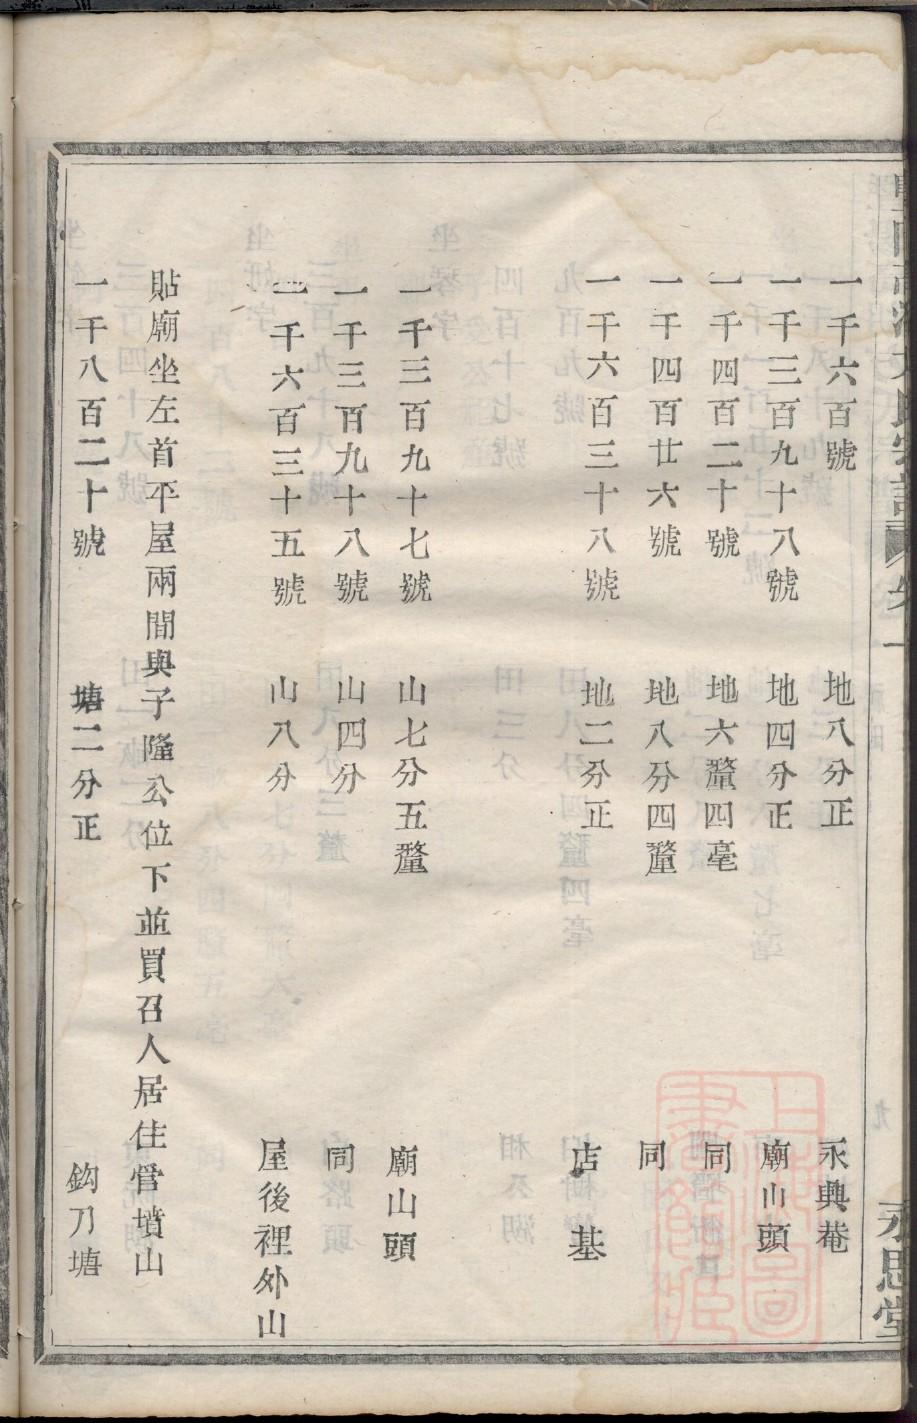 一千六百號 地八分正 永興菴
一千三百九十八號 地四分正 廟山頭
一千四百二十號 地六釐四毫 同
一千四百廿六號 地八分四釐 同
一千六百三十八號 地二分正 店基
一千三百九十七號 山七分五釐 廟山頭
一千三百九十八號 山四分 同
一千六百三十五號 山八分 屋後裡外山
貼廟坐左首平屋兩間與子隆公位下並買召人居住管墳山
一千八百二十號 塘二分正 鈎刀塘
永思堂
上海圖書館藏